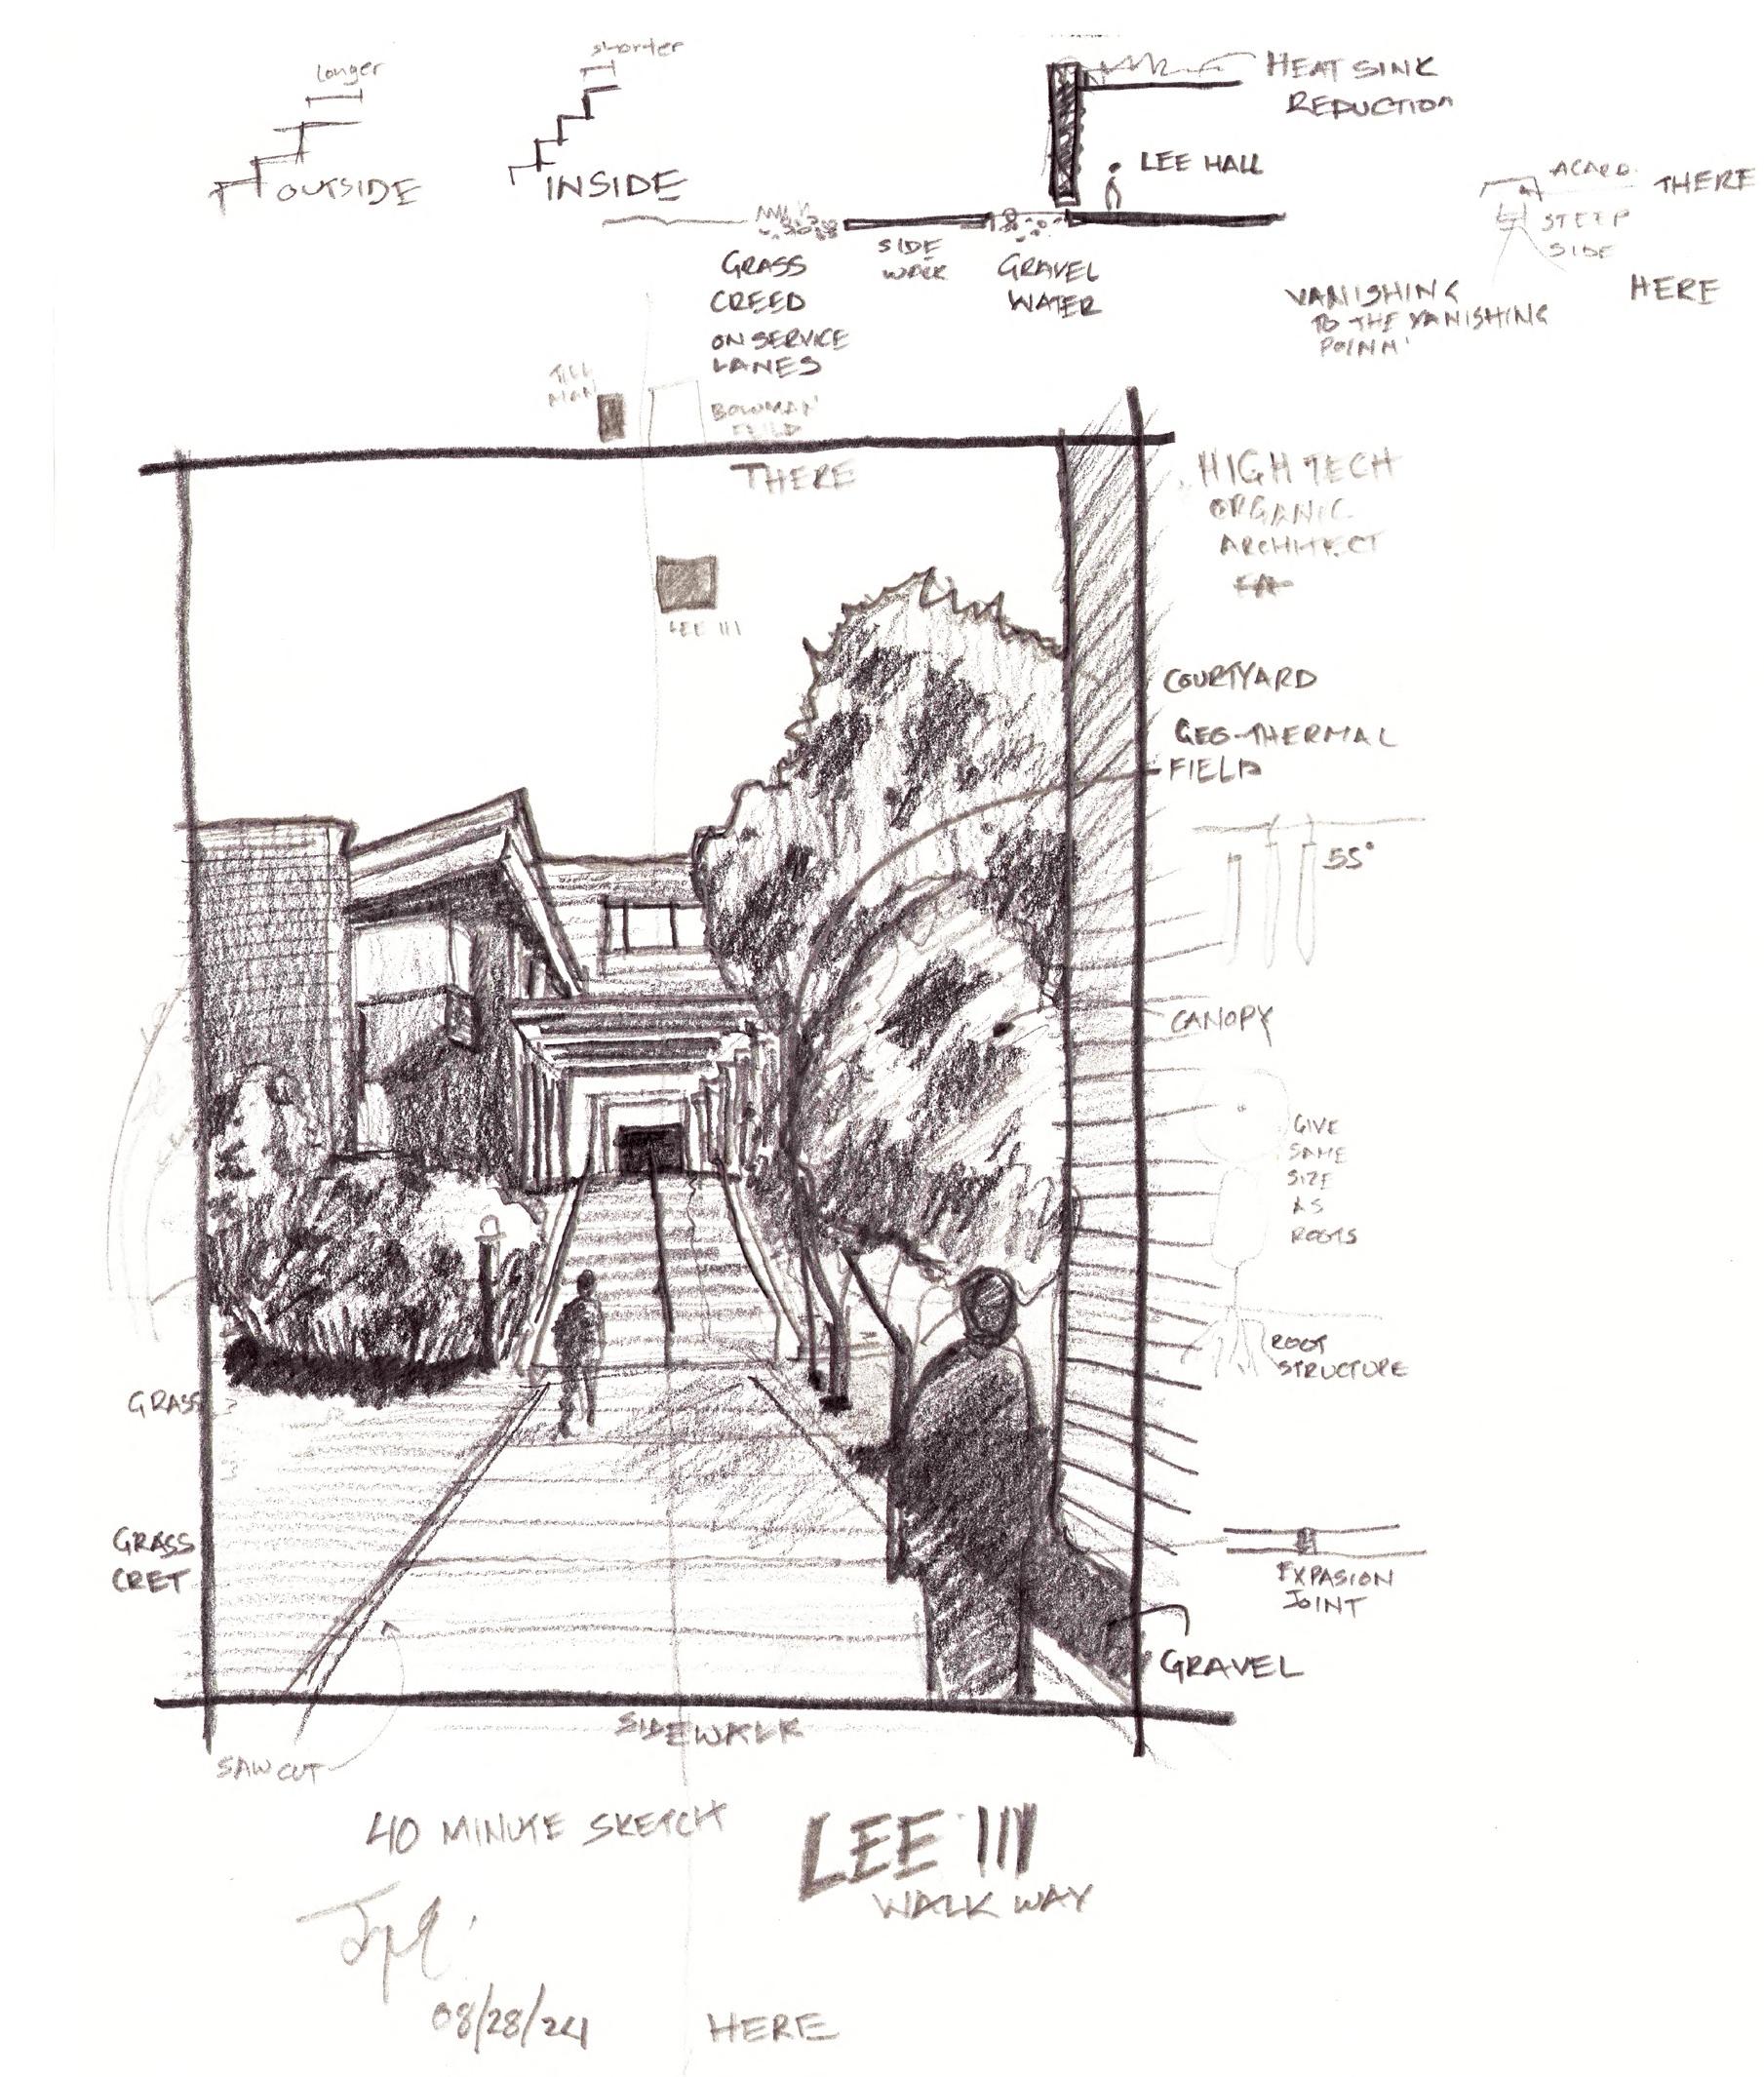 longer
shorter
OUTSIDE
INSIDE
HEAT SINK
REDUCTION
LEE HALL
THERE
STEEP
SIDE
HERE
VANISHING
TO THE VANISHING
SIDE
WALK
GRASS
CREED
ON SERVICE
LANES
GRAVEL
WATER
TILL
MAN
BOWMAN
THERE
LEE III
HIGH TECH
ORGANIC
ARCHITECT
COURTYARD
GEO-THERMAL
FIELD
55°
CANOPY
GIVE
SAME
SIZE
AS
ROOTS
ROOT
STRUCTURE
GRASS
GRASS
CRET
EXPASION
JOINT
GRAVEL
SIDEWALK
SAW CUT
40 MINUTE SKETCH
LEE III
WALK WAY
08/28/24
HERE